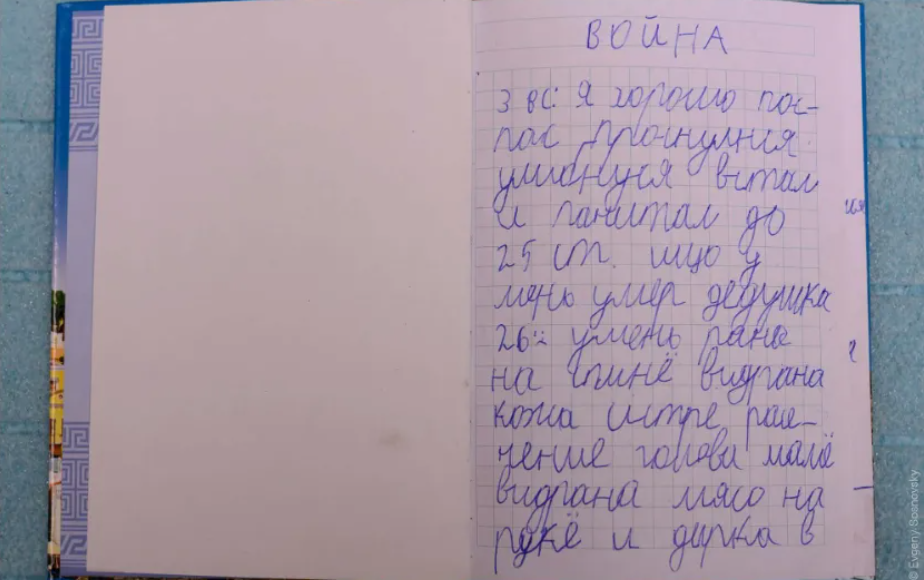 ВОЙНА
3 вс: я хорошо пос-
пас прочнулнся
умионуня встал
и пачитал до
25 ст. ищо у
мень умер дедушка
26-: умень рана
на спинё видрана
кожа
голова малё
видрана мясо на
рукё и дирка в
© Evgeny Sosnovsky